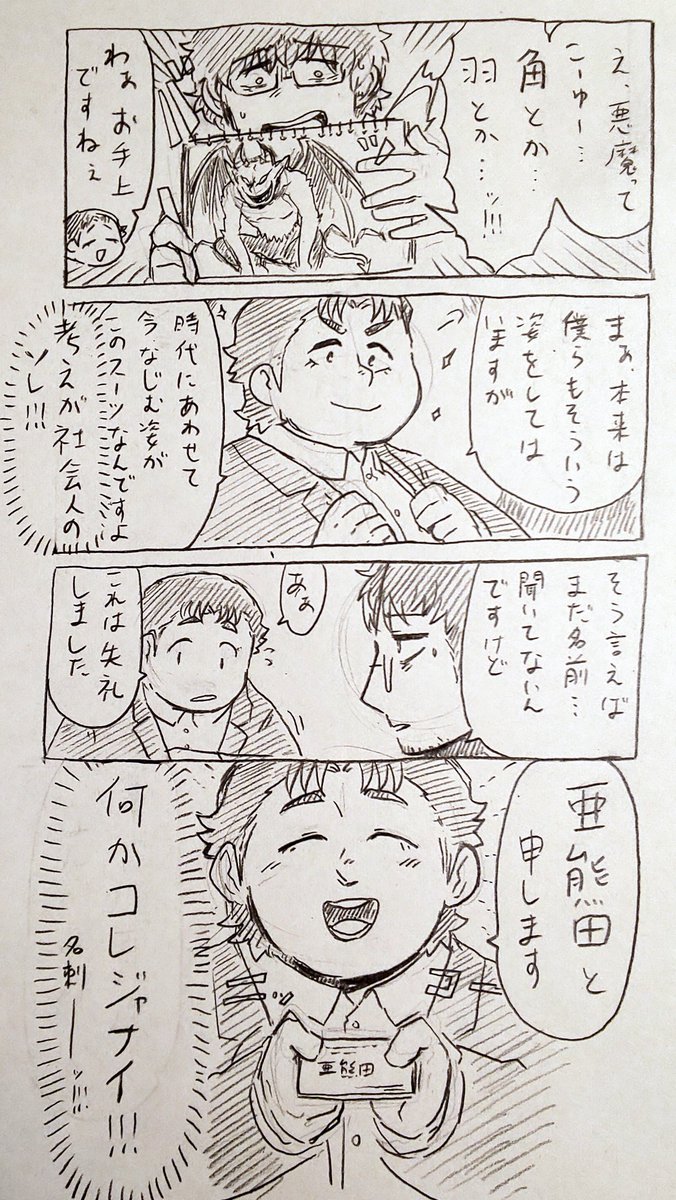 え、悪魔って
こーゆー…
角とか…
羽とか…ッ!!!
わぁ お手上
ですねぇ
まぁ、本来は
僕らもそういう
姿をしては
いますが
時代にあわせて
今なじむ姿が
このスーツなんですよ
考えが社会人の
ソレ!!!
そう言えば
まだ名前…
聞いてないん
ですけど
ああ
これは失礼
しました
亜熊田と
申します
亜熊田
何かコレジャナイ!!!
名刺ーッ!!!